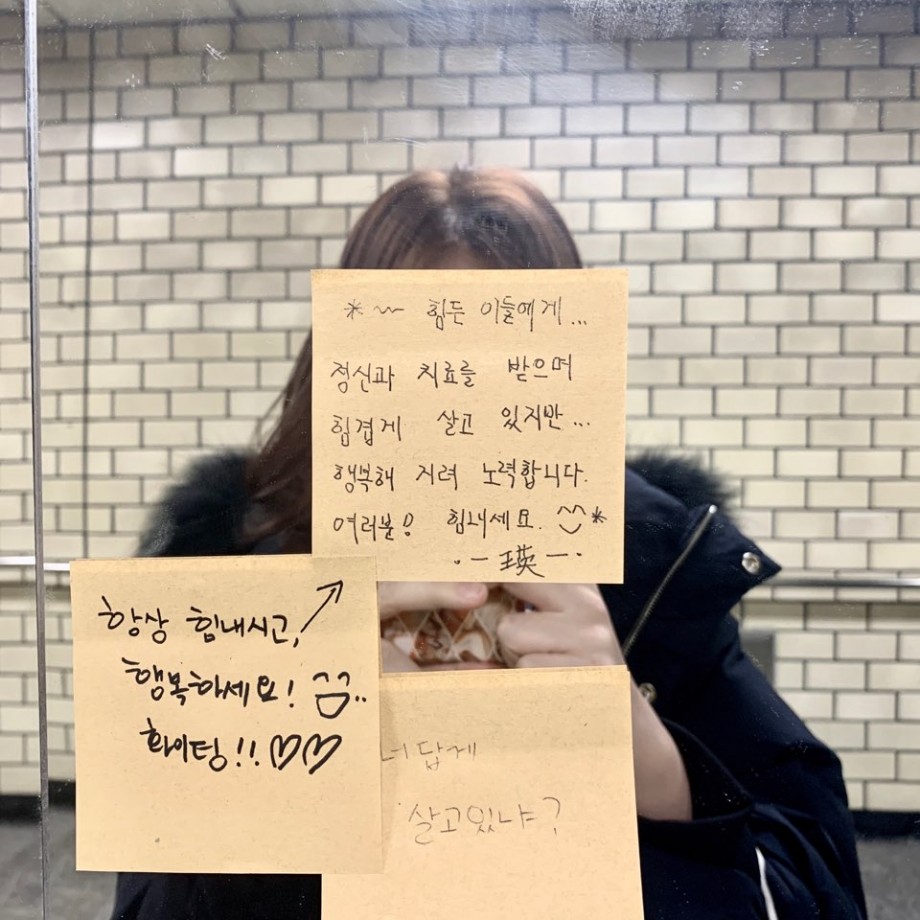 *~ 힘든 이들에게...
정신과 치료를 받으며
힘겹게 살고 있지만...
행복해 지려 노력합니다.
여러분! 힘내세요. ^^*
·一瑛一·
항상 힘내시고,↗
행복하세요! ^^..
화이팅!!♡♡
너답게
살고있냐?